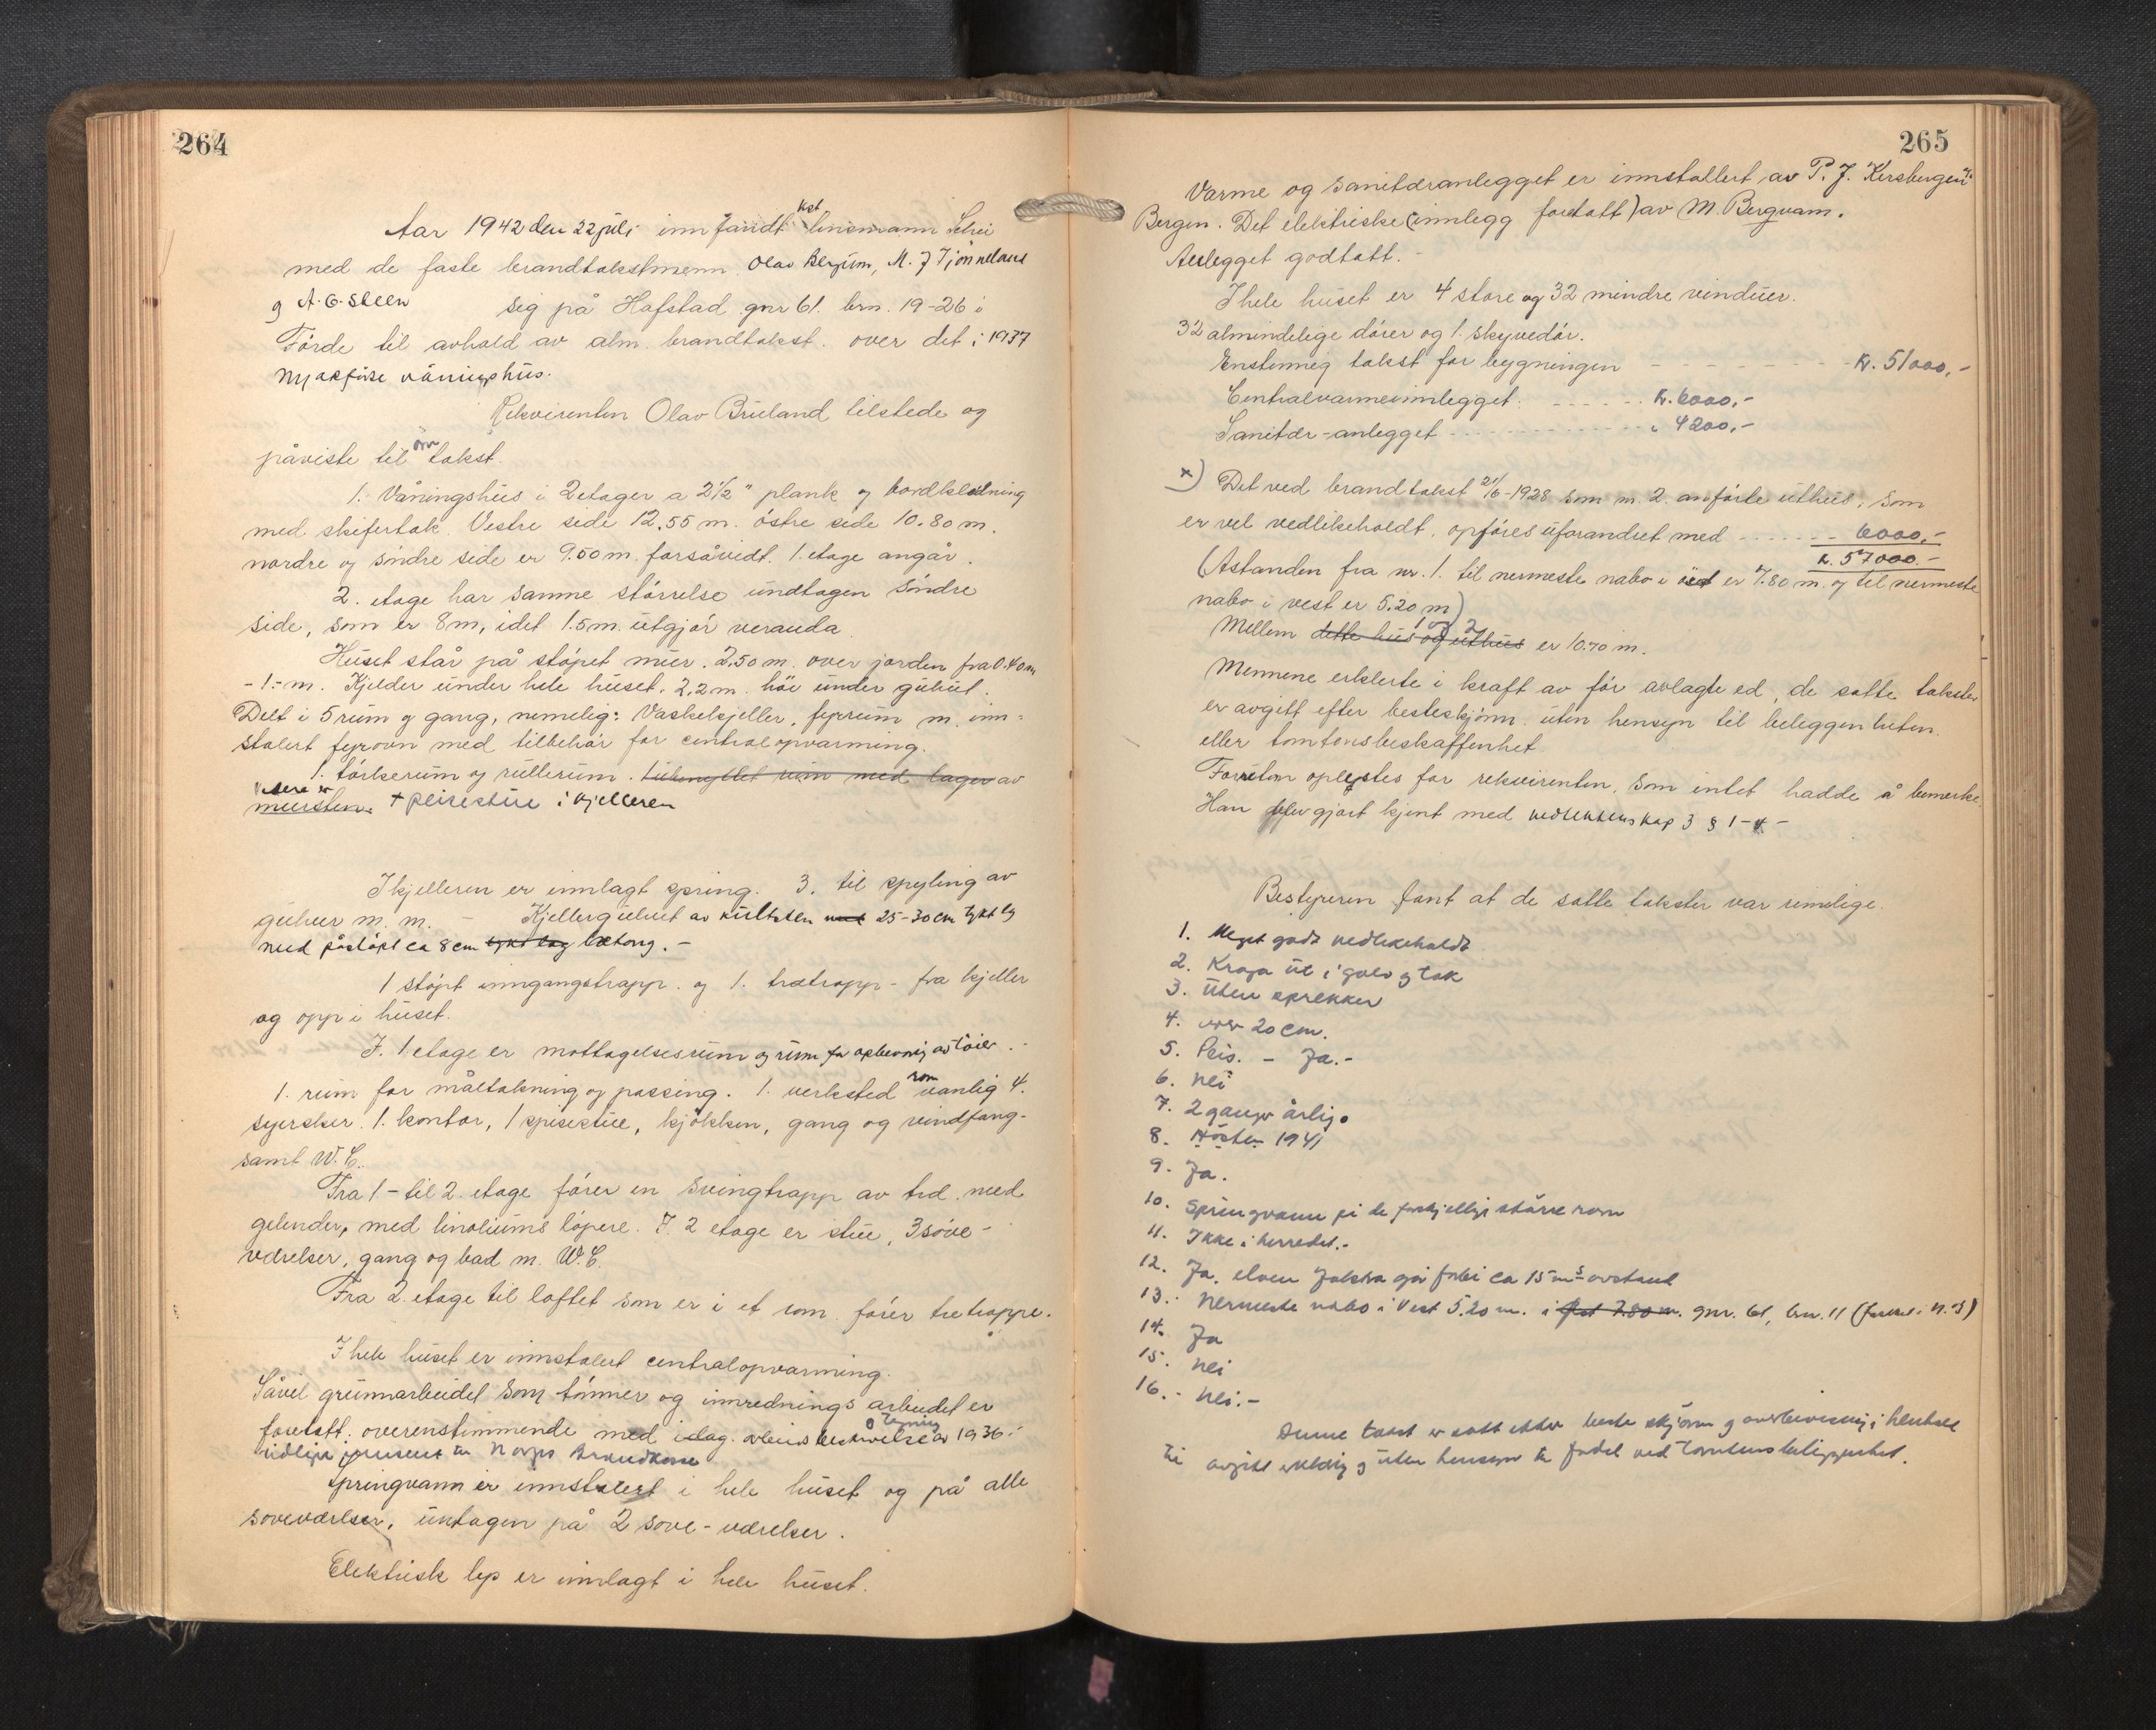 264
Aar 1942 den 22 juli innfandt kst lensmann Schei
med de faste brandtakstmenn Olav Bergum, M. J Tjönneland
og A. G. Steen sig på Hafstad gnr 61. brn. 19-26 i
Förde til avhold av alm. brandtakst. over det i 1937
nyopförte våningshus.
Rekvirenten Olav Bruland tilstede og
påviste til takst.
1. Våningshus i 2 etager a 2½" plank og bordkledning
med skifertak. Vestre side 12.55 m. östre side 10.80 m.
nordre og söndre side er 9.50 m. forsåvidt 1. etage angår.
2. etage har samme störrelse undtagen söndre
side, som er 8 m, idet 1.5 m. utgjör veranda.
Huset står på stöpt mur. 2.50 m. over jorden fra 0.40 m
- 1.- m. Kjelder under hele huset. 2.2 m. höi under gulvet.
Delt i 5 rum og gang, nemelig: Vaskekjeller, fyrrum m. inn-
stalert fyrovn med tilbehör for centralopvarming.
1. törkerum og rullerum. av
mursten. + peisestue i kjelleren
I kjelleren er innlagt spring. 3. til spyling av
gulver m. m. - Kjellergulvet av kultsten med 25-30 cm tykt lag
med påstöpt ca 8 cm tykt lag betong. -
1 stöpt inngangstrapp. og 1. trætrapp - fra kjeller
og opp i huset.
I. 1 etage er mottagelsesrum og rum for opbevaring av töier. -
1. rum for måltakning og passing. 1. verksted rom vanlig 4.
syersker. 1. kontor, 1 spisestue, kjökken, gang og vindfang-
samt W. C.
Fra 1 - til 2. etage förer en svingtrapp av træ med
gelender, med linoliums löpere. I 2 etage er stue, 3 sove-
værelser, gang og bad m. W. C.
Fra 2. etage til loftet som er i et rom. förer tretrappe.
I hele huset er innstalert centralopvarming.
Såvel grunnarbeidet som tömmer og innrednings arbeidet er
foretatt. overenstimmende med idag. arbeidsbeskrivelse og tegning av 1936.
tidligere Norges Brandkasse
Springvann er innstalert i hele huset og på alle
soveværelser, untagen på 2 sove-værelser.
Elektrisk lys er innlagt i hele huset.
265
Varme og sanitæranlegget er innstallert av P. J. Kersbergen
Bergen. Det elektriske (innlegg foretatt) av M. Bergvam.
Anlegget godtatt. -
I hele huset er 4 store og 32 mindre vinduer.
32 almindelige dörer og 1. skyvedör.
Enstemmig takst for bygningen - - - - - - - kr. 51000,-
Centralvarmeinnlegget. - - - - - - kr. 6000,-
Sanitær-anlegget - - - - - - - - - - - - " 4200,-
+) Det ved brandtakst 21/6-1928 som nr. 2. anförte uthus, som
er vel vedlikeholdt, opföres uforandret med - - - - - - 6000,-
kr. 57000.-
(Astanden fra nr. 1. til nermeste nabo i öst er 7.80 m. og til nermeste
nabo i vest er 5.20 m)
Mellem dette hus og uthus 1 og 2 er 10.70 m.
Mennene erklerte i kraft av för avlagte ed, de satte takster
er avgitt efter besteskjönn. uten hensyn til beleggenheten.
eller tomtensbeskaffenhet.
Forretn oplestes for rekvirenten, som intet hadde å bemerke.
Han blev gjort kjent med vedtektenskap 3 § 1-4 -
Bestyreren fant at de satte takster var rimelige.
1. Meget godt vedlikeholdt
2. Kraga ut i golv og tak
3. Uten sprekker
4. over 20 cm.
5. Peis. - Ja. -
6. Nei
7. 2 ganger årlig.
8. Hösten 1941
9. Ja.
10. Springvann på de forskjellige större rom
11. Ikke i herredet. -
12. Ja. elven Jölstra går forbi ca 15 m's avstand
13. Nermeste nabo i Vest 5.20 m. i öst 7.80 m. gnr. 61, brn. 11
14. Ja
15. Nei
16. - Nei. -
Denne takst er satt etter beste skjönn og overbevisning i henhold
til avgitt erklæring og uten hensyn til fordel ved tomtens beliggenhet.